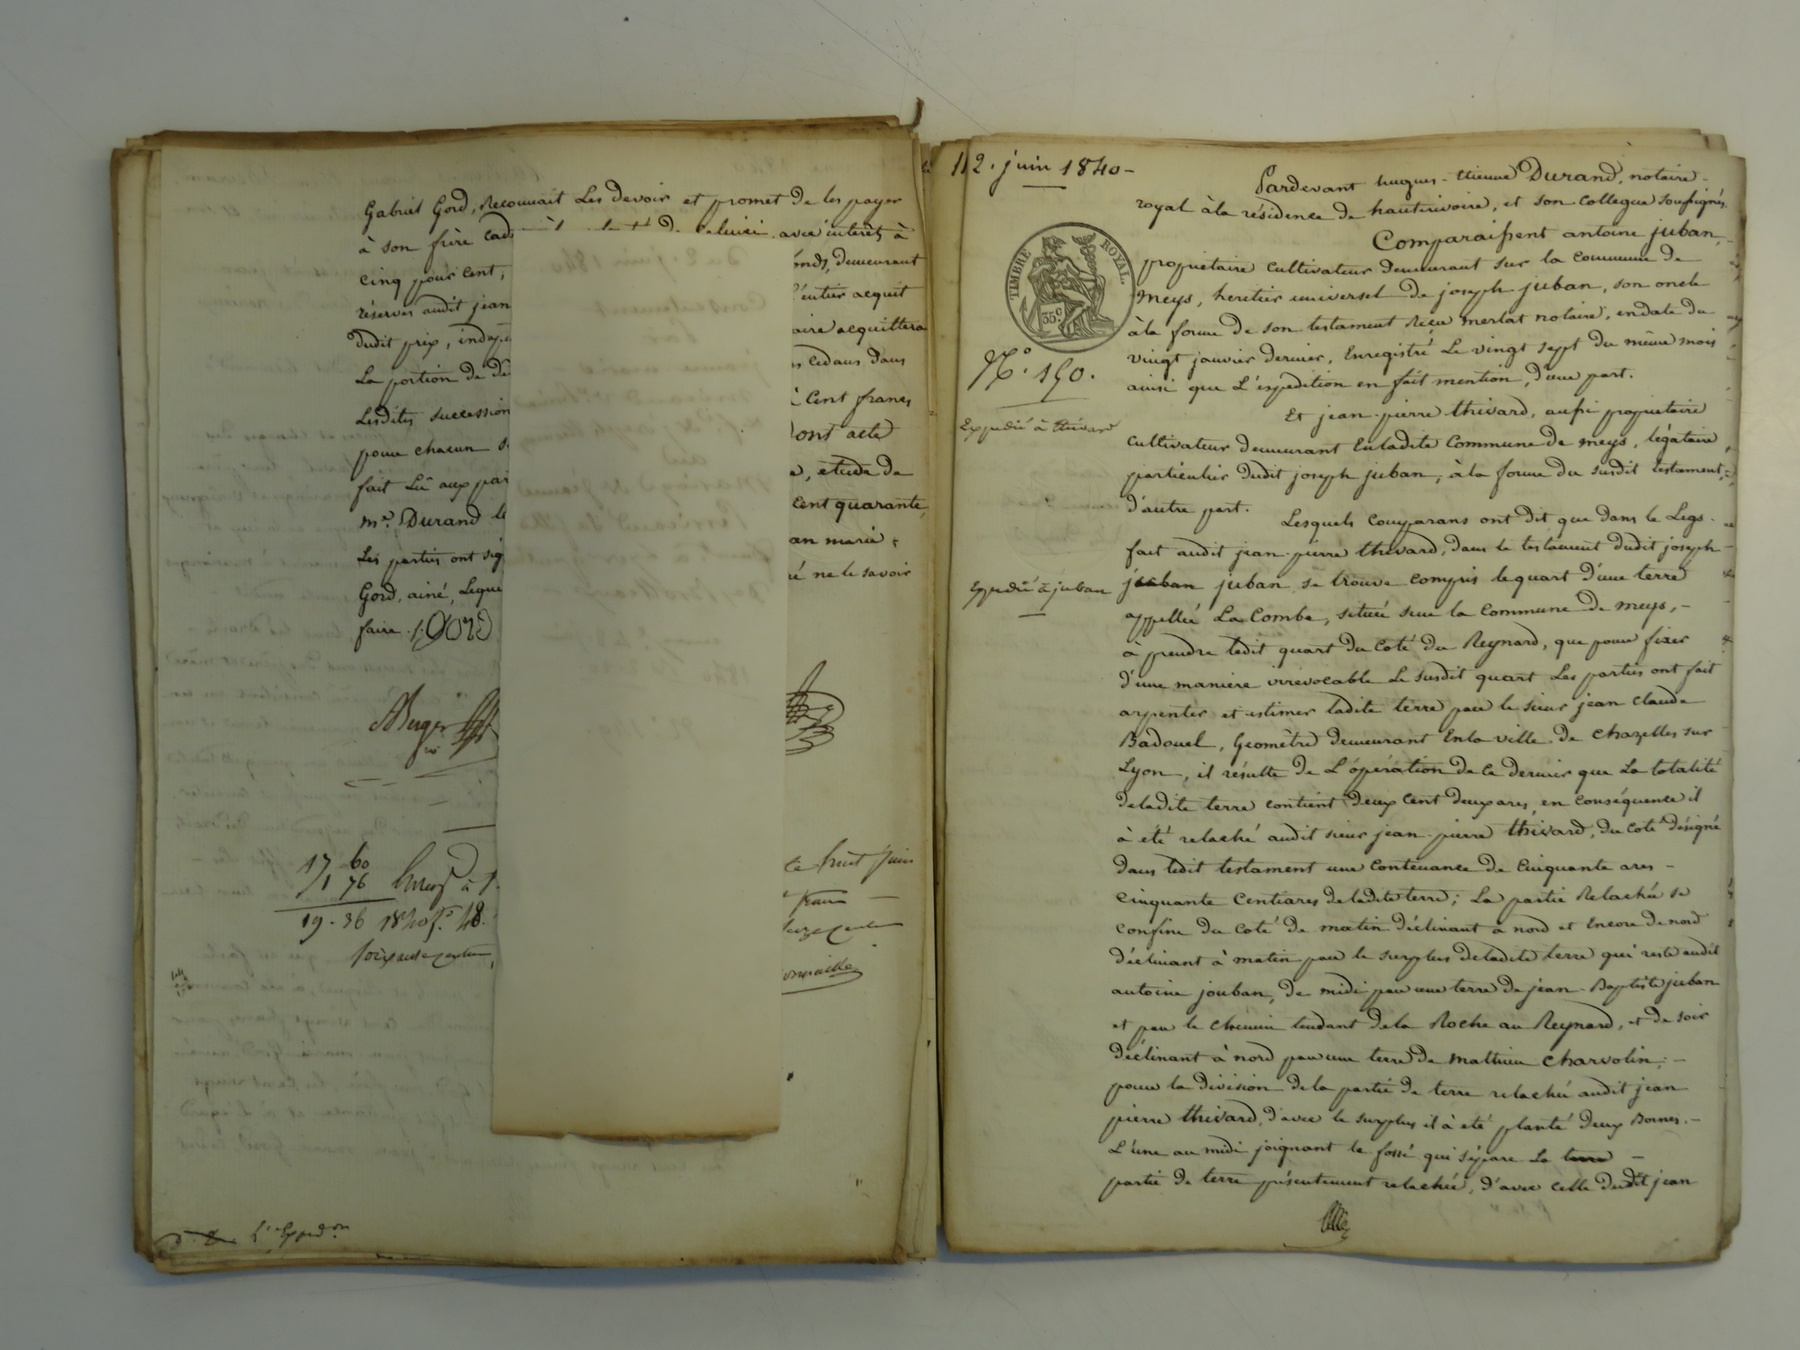 Gabriel Gord, Reconnait Les devoir et promet de les payer
à son frère avec interêts à
cinq pour cent, demeurant
réserves audit jean l'entier acquit
dudit prix, aire acquittera
La portion de cedans dans
Lesdites succession Cent francs
pour chacun dont acte
fait Lû aux par étude de
me. Durand le cent quarante,
Les parties ont sig an marie
Gord, ainé, Leque ré ne le savoir
faire ./. GORD
Berger
17 60
1 76
19-36 1840 fo 48.
le huit juin
L'Exped.on
12. juin 1840-
TIMBRE ROYAL
35 c
No. 190.
Expédié à thivard
Expédié à juban
Pardevant hugues-Etienne Durand, notaire-
royal à la résidence de hauterivoire, et son collegue soussignés.
Comparaissent antoine juban,
propriétaire cultivateur demeurant sur la commune de
meys, heritier universel de joseph juban, son oncle
à la forme de son testament Reçu merlat notaire, en date du
vingt janvier dernier, Enregistré Le vingt sept du même mois
ainsi que L'expedition en fait mention, d'une part.
Et jean-pierre thivard, aussi propriétaire
cultivateur demeurant Enladite Commune de meys, légataire
particulier dudit joseph juban, à la forme du susdit testament,
d'autre part.
Lesquels comparans ont dit que dans le Legs
fait audit jean-pierre thivard, dans le testament dudit joseph
juban juban, se trouve compris le quart d'une terre
appellée La Combe, située sur la Commune de meys,-
à prendre ledit quart du coté du Reynard, que pour fixer
d'une maniere irrevocable Le susdit quart Les parties ont fait
arpenter et estimer ladite terre par le sieur jean claude
Badouel, Geomètre demeurant Enla ville de chazelles sur
Lyon, il résulte de L'opération de ce dernier que La totalité
deladite terre contient deux cent deux ares, en conséquence il
à été relaché audit sieur jean-pierre thivard, du coté désigné
dans ledit testament une contenance de cinquante ares-
cinquante centiares deladite terre; La partie Relachée se
confine du coté de matin déclinant à nord et Encore de nord
déclinant à matin par le surplus deladite terre qui reste audit
antoine jouban, de midi par une terre de jean-Baptiste juban
et par le chemin tendant dela Roche au Reynard, et de soir
déclinant à nord par une terre de mathieu charvolin;-
pour la division dela partie de terre relachée audit jean
pierre thivard, d'avec le surplus il à été planté deux Bornes.-
L'une au midi joignant le fossé qui sépare La terre-
partie de terre présentement relachée, d'avec celle dudit jean